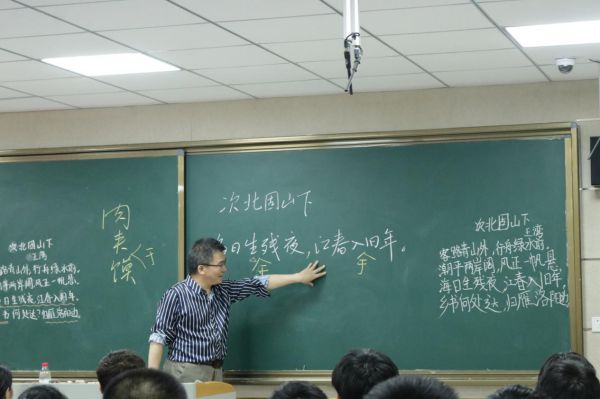 次北固山下
王湾
路青山外，行舟绿水前。
平两岸阔，风正一帆悬。
日生残夜，江春入旧年。
书何处达？归雁洛阳边。
肉夹馍
于
次北固山下
日生残夜，江春入旧年。
于
次北固山下
王湾
客路青山外，行舟绿水前。
潮平两岸阔，风正一帆悬
海日生残夜，江春入旧年，
乡书何处达，归雁洛阳边